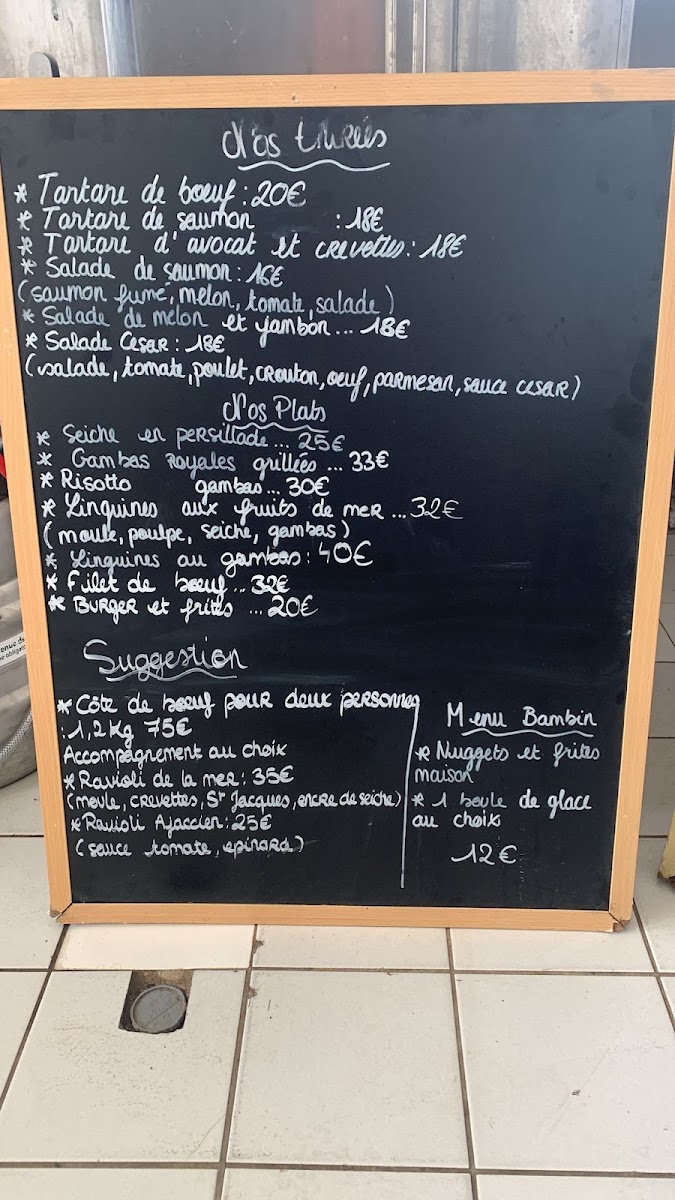 Nos Entrées
* Tartare de boeuf : 20€
* Tartare de saumon : 18€
* Tartare d'avocat et crevettes : 18€
* Salade de saumon : 16€
(saumon fumé, melon, tomate, salade)
* Salade de melon et jambon... 18€
* Salade Cesar : 18€
(salade, tomate, poulet, crouton, oeuf, parmesan, sauce cesar)
Nos Plats
* Seiche en persillade... 25€
* Gambas royales grillées ... 33€
* Risotto gambas... 30€
* Linguines aux fruits de mer ... 32€
(moule, poulpe, seiche, gambas)
* Linguines au gambas : 40€
* Filet de boeuf... 32€
* Burger et frites ... 20€
Suggestion
* Côte de boeuf pour deux personnes
: 1,2 kg 75€
Accompagnement au choix
* Ravioli de la mer : 35€
(moule, crevettes, St Jacques, encre de seiche)
* Ravioli Ajaccien : 25€
(sauce tomate, epinard)
Menu Bambin
* Nuggets et frites
maison
* 1 boule de glace
au choix
12€